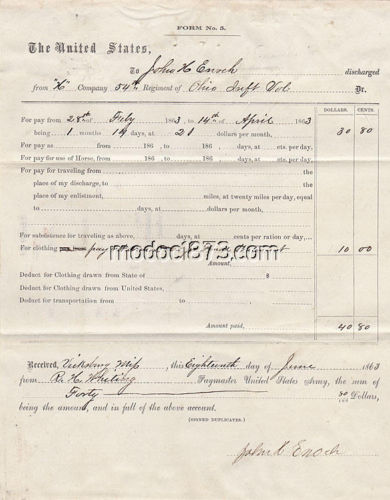 FORM No. 5.
The United States,
To John H Enoch discharged
from "K" Company 54th Regiment of Ohio Inft Vol. Dr.
DOLLARS. CENTS.
For pay from 28th of Feby 1863 to 14th of April 1863
being 1 months 14 days, at 21 dollars per month, 30 80
For pay as from 186 to 186 days, at cts. per day,
For pay for use of Horse, from 186 to 186 , days, at cts. per day,
For pay for traveling from the
place of my discharge, to the
place of my enlistment, miles, at twenty miles per day, equal
to days, at dollars per month,
For subsistence for traveling as above, days, at cents per ration or day,
For clothing pay 10 00
modoc1873.com
Amount,
Deduct for Clothing drawn from State of $
Deduct for Clothing drawn from United States,
Deduct for transportation from to
Amount paid, 40 80
Received, Vicksburg Miss, this Eighteenth day of June 1863
from R. H. Whiting Paymaster United States Army, the sum of
Forty 80/100 Dollars,
being the amount, and in full of the above account.
(SIGNED DUPLICATES.)
John H Enoch